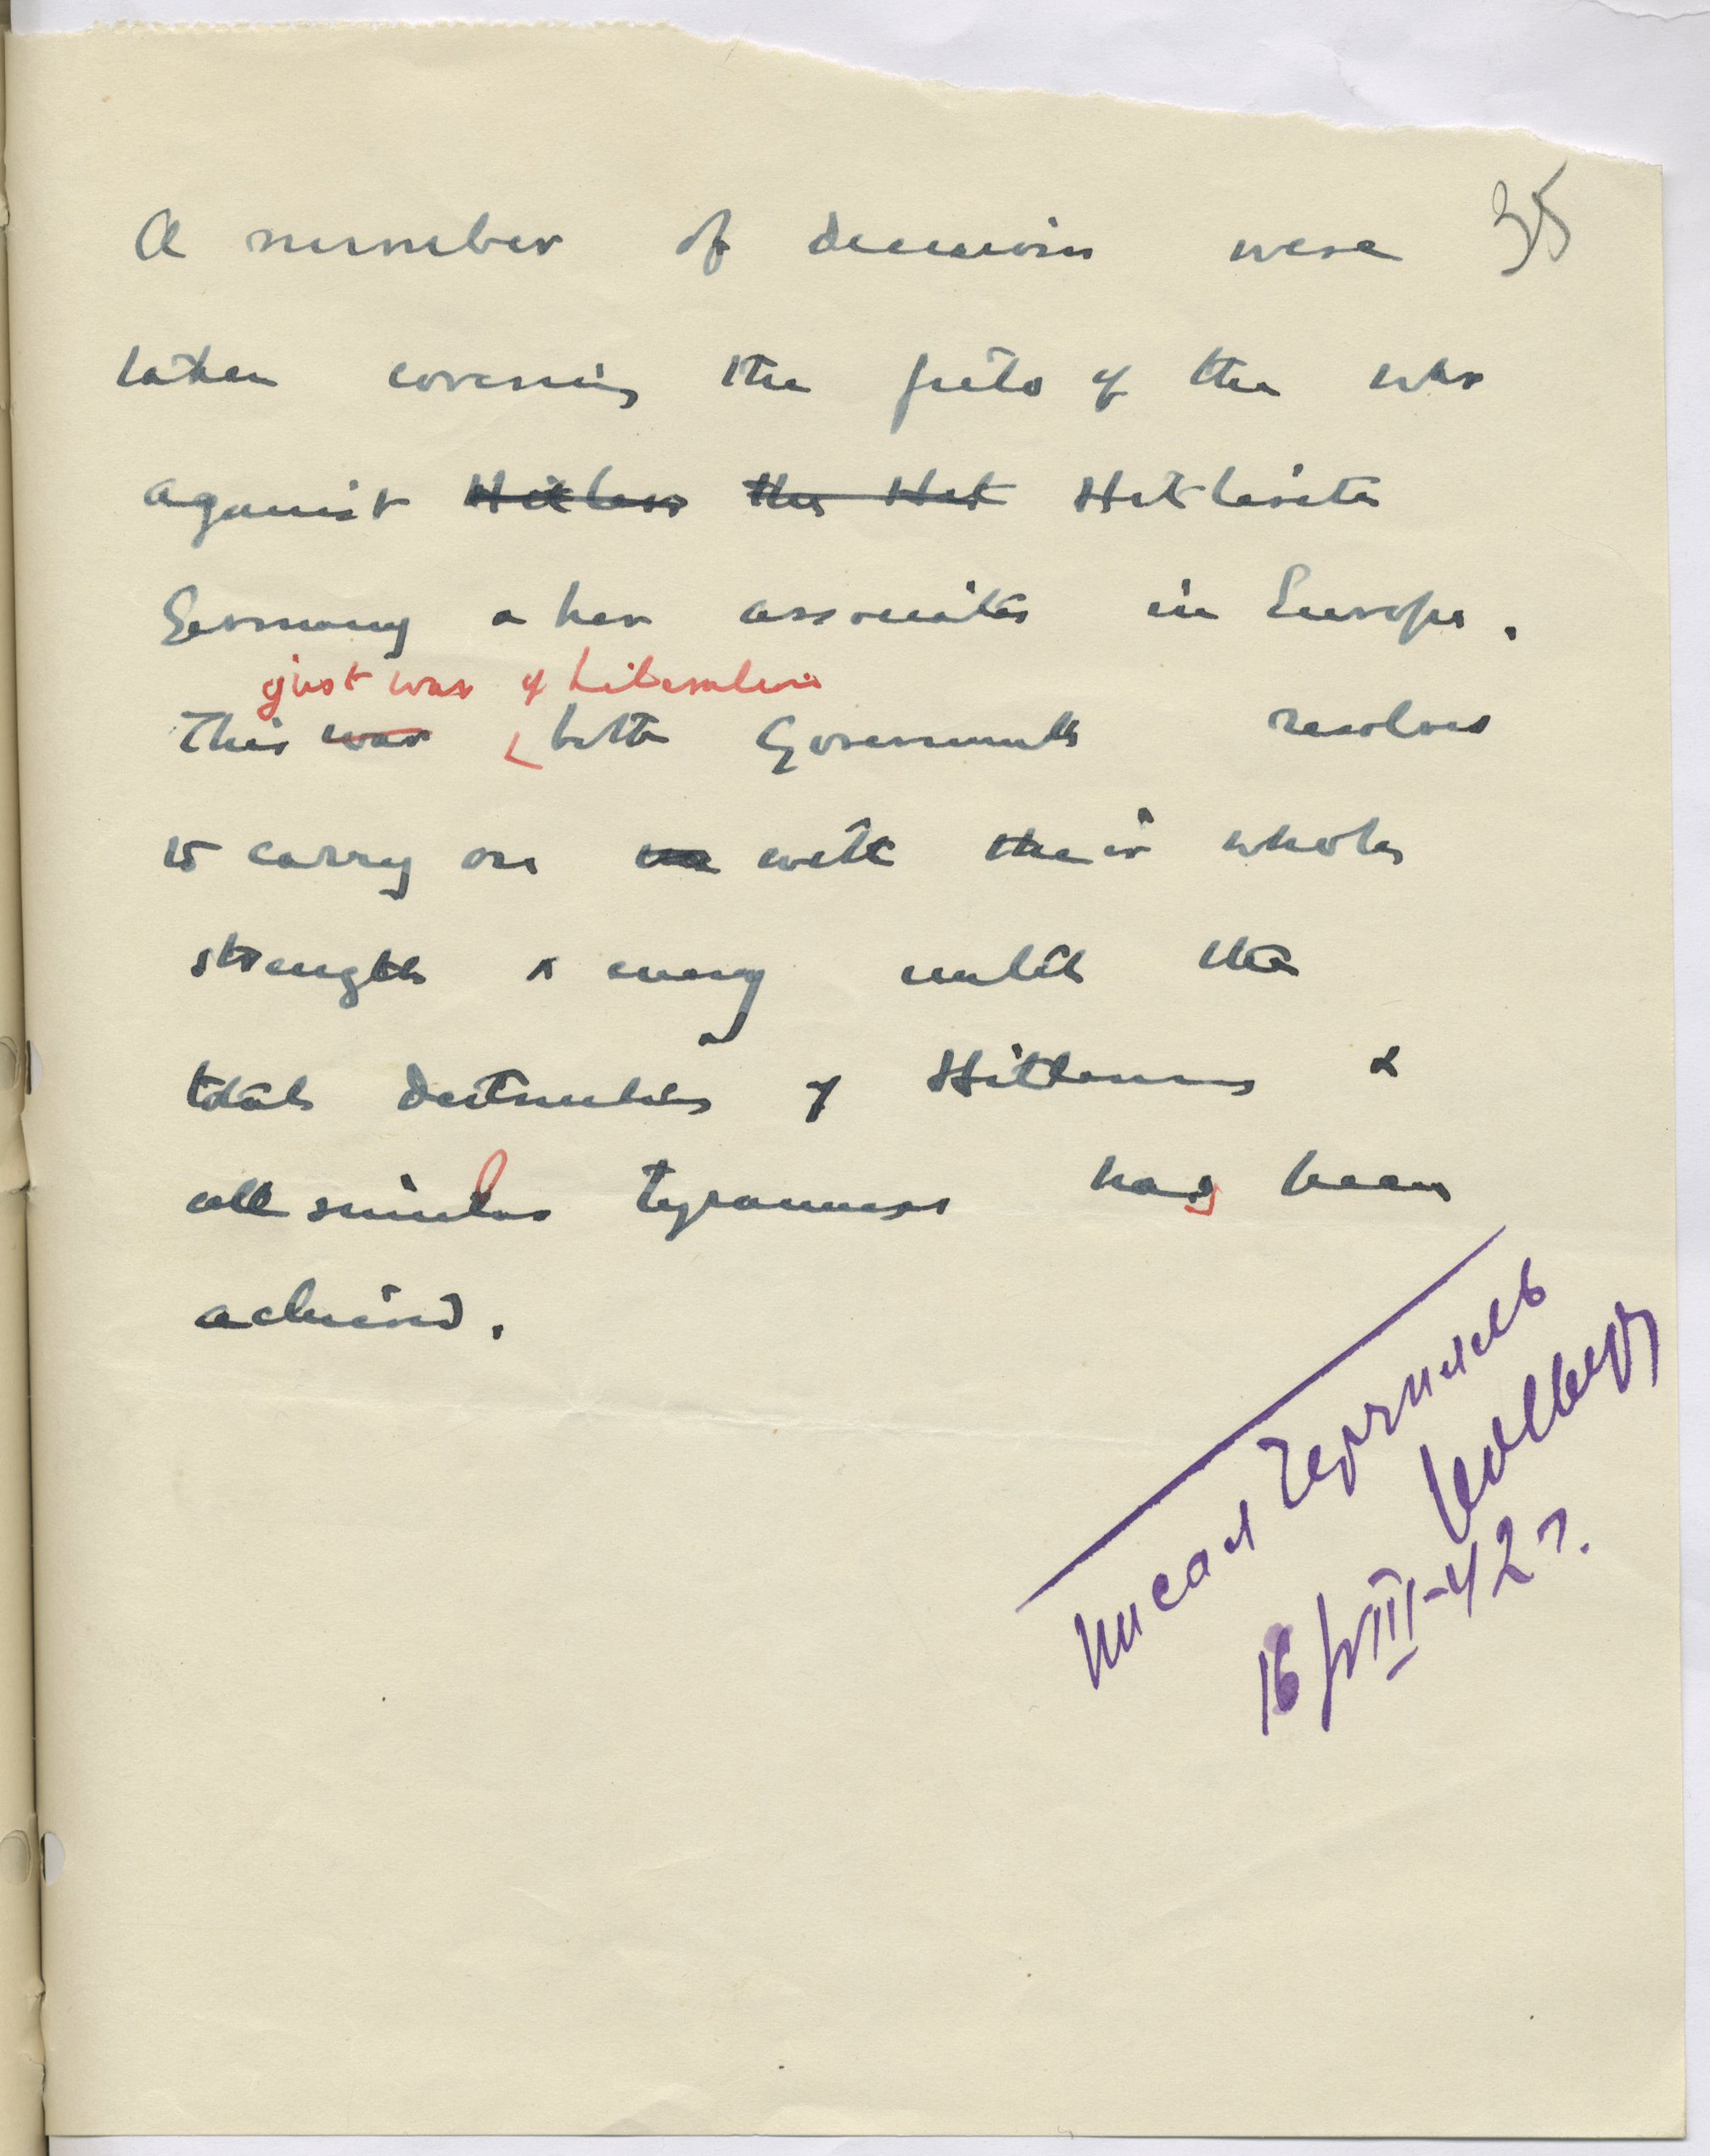 35
A number of decisions were
taken covering the field of the war
against Hitlers the Hit Hitlerite
Germany & her associates in Europe.
just war of liberation
This war both Governments resolved
to carry on with their whole
strength & energy until the
total destruction of Hitlerism &
all similar tyrannies has been
achieved.
Писал Черчилль
16/VIII-42 г.